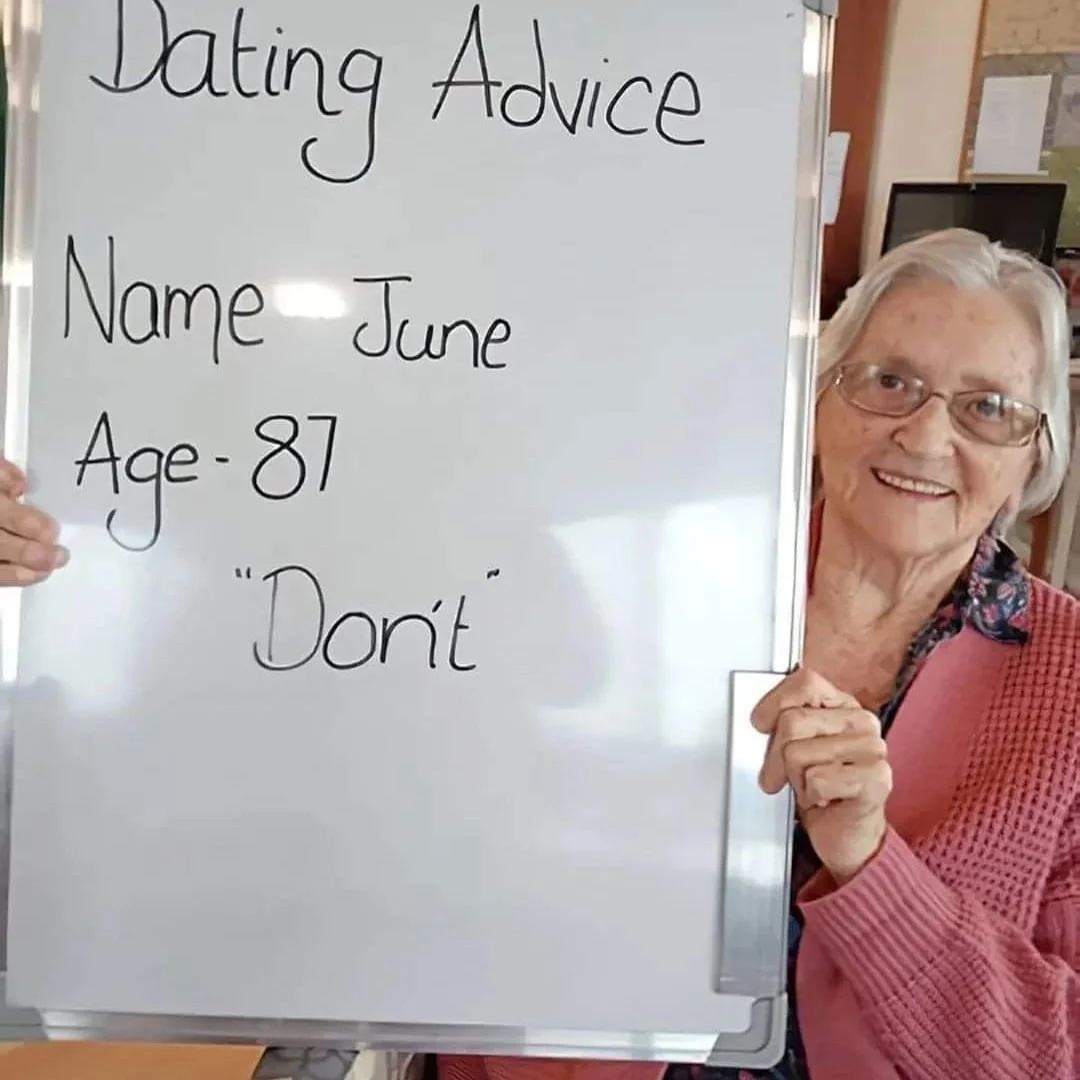 Dating Advice
Name June
Age - 87
"Don't"